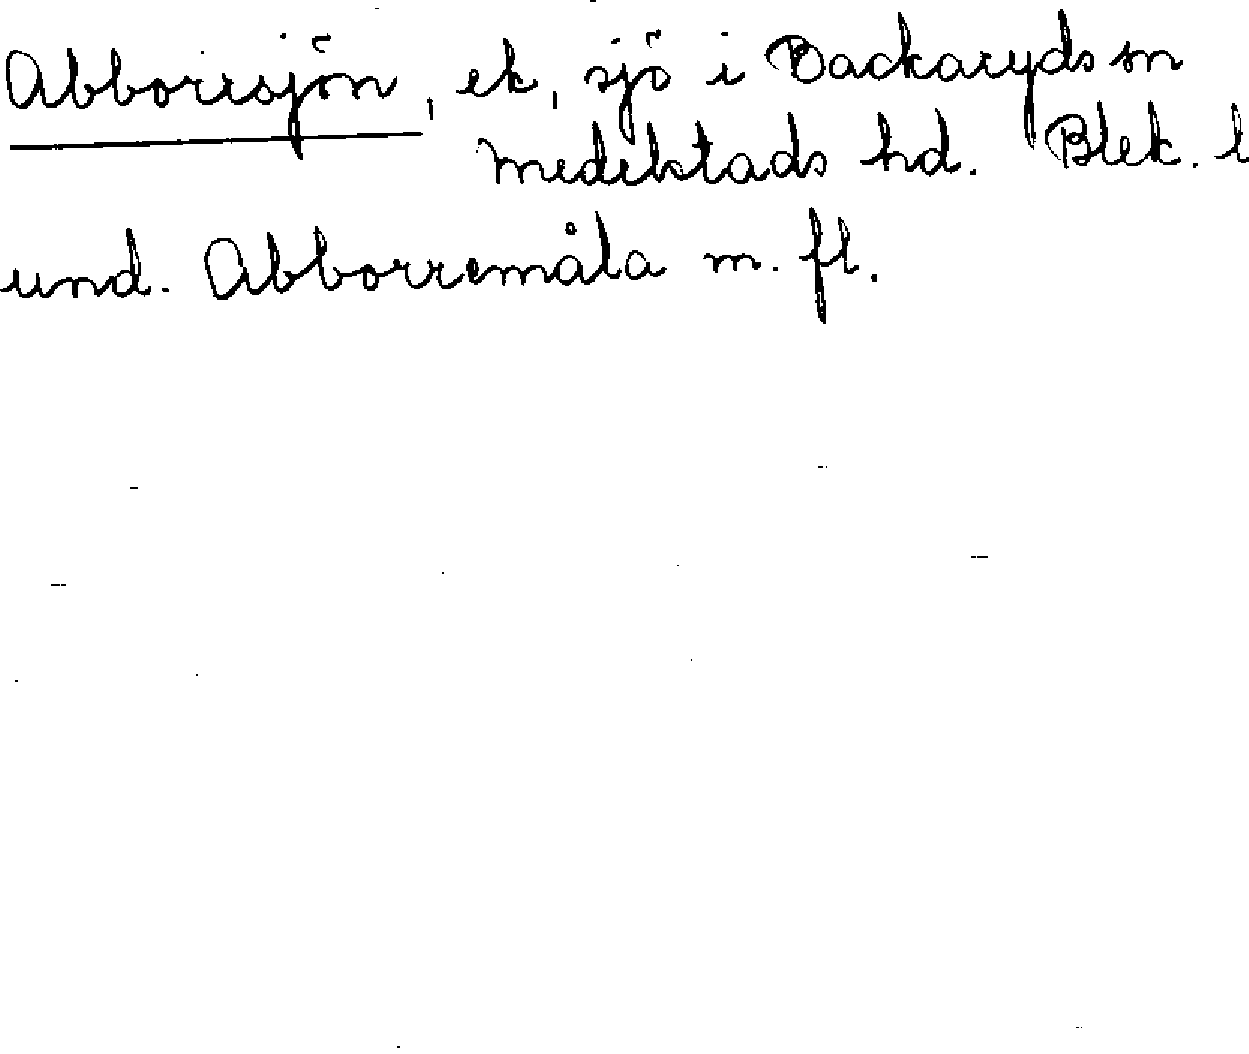 Abborrsjön, ek, sjö i Backaryds sn
Medelstads hd. Blek. l
und. Abborremåla m. fl.